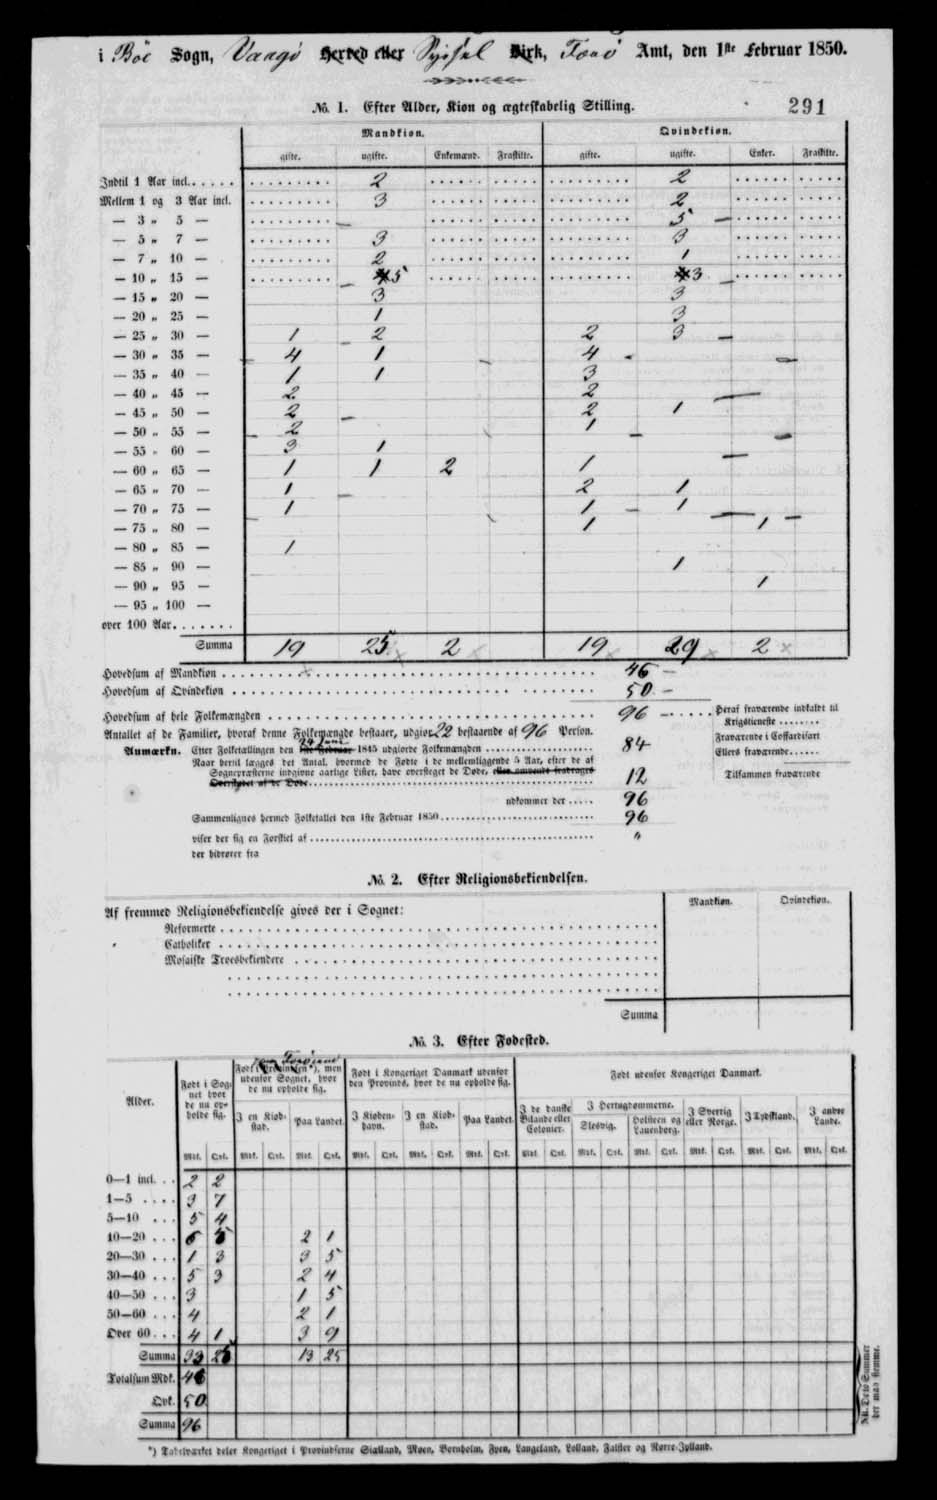 i Böe Sogn, Vaagö Herred eller Syssel Birk, Færö Amt, den 1ste Februar 1850.
No. 1. Efter Alder, Kion og ægteskabelig Stilling.
291
Mandkion. Qvindekion.
gifte. ugifte. Enkemænd. Fraskilte. gifte. ugifte. Enker. Fraskilte.
Indtil 1 Aar incl. 2 2
Mellem 1 og 3 Aar incl. 3 2
— 3 „ 5 — 5
— 5 „ 7 — 3 3
— 7 „ 10 — 2 1
— 10 „ 15 — 5 3
— 15 „ 20 — 3 3
— 20 „ 25 — 1 3
— 25 „ 30 — 1 2 2 3
— 30 „ 35 — 4 1 4
— 35 „ 40 — 1 1 3
— 40 „ 45 — 2 2
— 45 „ 50 — 2 2 1
— 50 „ 55 — 2 1
— 55 „ 60 — 3 1
— 60 „ 65 — 1 1 2 1
— 65 „ 70 — 1 2 1
— 70 „ 75 — 1 1 1
— 75 „ 80 — 1 1
— 80 „ 85 — 1
— 85 „ 90 — 1
— 90 „ 95 — 1
— 95 „ 100 —
over 100 Aar.
Summa 19 25 2 19 29 2
Hovedsum af Mandkion 46
Hovedsum af Qvindekion 50
Hovedsum af hele Folkemængden 96
Heraf fraværende indkaldt til
Krigstieneste
Antallet af de Familier, hvoraf denne Folkemængde bestaaer, udgiør 22 bestaaende af 96 Person.
Fraværende i Coffardifart
Anmærkn. Efter Folketællingen den 1ste Februar 1845 udgiorde Folkemængden 84
Ellers fraværende
Naar hertil lægges det Antal, hvormed de Fødte i de mellemliggende 5 Aar, efter de af
Sognepræsterne indgivne aarlige Lister, have oversteget de Døde, eller omvendt fradrages
Overskudet af de Døde 12
Tilsammen fraværende
udkommer der 96
Sammenlignes hermed Folketallet den 1ste Februar 1850 96
viser der sig en Forskiel af „
der hidrører fra
No. 2. Efter Religionsbekiendelsen.
Mandkion. Qvindekion.
Af fremmed Religionsbekiendelse gives der i Sognet:
Reformerte
Catholiker
Mosaiske Troesbekiendere
Summa
No. 3. Efter Fødested.
Alder.
Født i Sognet hvor de nu opholde sig.
Født i Provindsen*), men udenfor Sognet, hvor de nu opholde sig.
Født i Kongeriget Danmark udenfor den Provinds, hvor de nu opholde sig.
Født udenfor Kongeriget Danmark.
I en Kiøbstad. Paa Landet. I Kiøbenhavn. I en Kiøbstad. Paa Landet. I de danske Bilande eller Colonier. I Hertugdømmerne. Slesvig. Holsteen og Lauenborg. I Sverrig eller Norge. I Tydskland. I andre Lande.
Mdk. Qvk. Mdk. Qvk. Mdk. Qvk. Mdk. Qvk. Mdk. Qvk. Mdk. Qvk. Mdk. Qvk. Mdk. Qvk. Mdk. Qvk. Mdk. Qvk. Mdk. Qvk. Mdk. Qvk.
0—1 incl. 2 2
1—5 3 7
5—10 5 4
10—20 6 5 2 1
20—30 1 3 3 5
30—40 5 3 2 4
40—50 3 1 5
50—60 4 2 1
Over 60 4 1 3 9
Summa 33 25 13 25
Totalsum Mdk. 46
Qvk. 50
Summa 96
NB. Dette Summer
her maa stemme.
*) Tabelværket deler Kongeriget i Provindserne Siælland, Møen, Bornholm, Fyen, Langeland, Lolland, Falster og Nørre-Jylland.